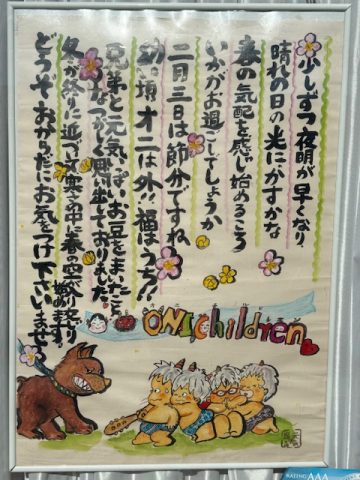 少しずつ夜明が早くなり
晴れの日の光にかすかな
春の気配を感じ始めるころ
いかがお過ごしでしょうか
二月三日は節分ですね
幼い頃オニは外!!福はうち!!
兄弟と元気いっぱいお豆をまいたことを
なつかしく思い出しておりました。
冬が終りに近づいて寒さの中に春の空気が
交り始めます。
どうぞおからだにお気をつけ下さいませ。
オニチルドレン
ONI children
RATING AAA